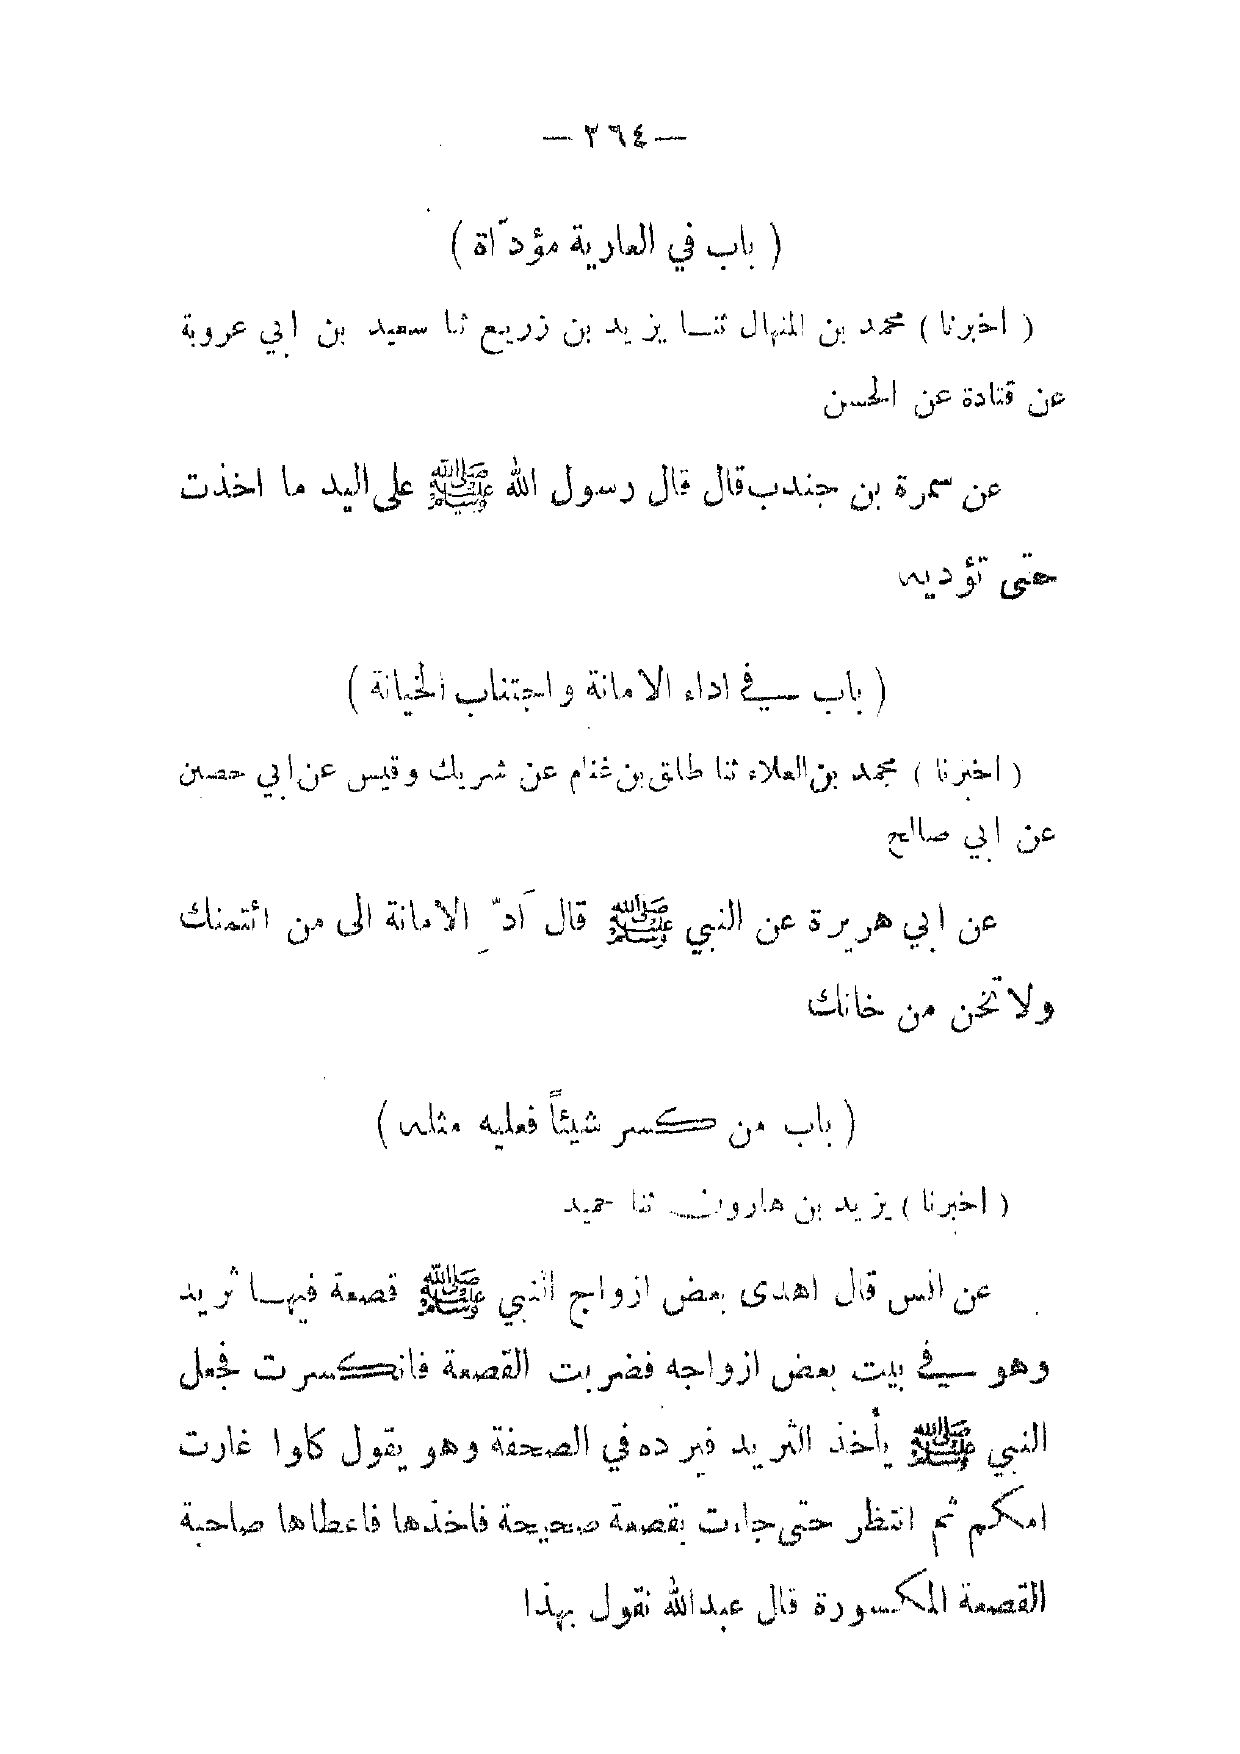 — ٢٦٤ —
( باب في العارية مؤدّاة )
( اخبرنا ) محمد بن المنهال ثنا يزيد بن زريع ثنا سعيد بن ابي عروبة
عن قتادة عن الحسن
عن سمرة بن جندب قال قال رسول الله ﷺ على اليد ما اخذت
حتى تؤديه
( باب في اداء الامانة واجتناب الخيانة )
( اخبرنا ) محمد بن العلاء ثنا طلق بن غنام عن شريك وقيس عن ابي حصين
عن ابي صالح
عن ابي هريرة عن النبي ﷺ قال أدِّ الامانة الى من ائتمنك
ولا تخن من خانك
( باب من كسر شيئاً فعليه مثله )
( اخبرنا ) يزيد بن هارون ثنا حميد
عن انس قال اهدى بعض ازواج النبي ﷺ قصعة فيها ثريد
وهو في بيت بعض ازواجه فضربت القصعة فانكسرت فجعل
النبي ﷺ يأخذ الثريد فيرده في الصحفة وهو يقول كلوا غارت
امكم ثم انتظر حتى جاءت بقصعة صحيحة فاخذها فاعطاها صاحبة
القصعة المكسورة قال عبدالله نقول بهذا